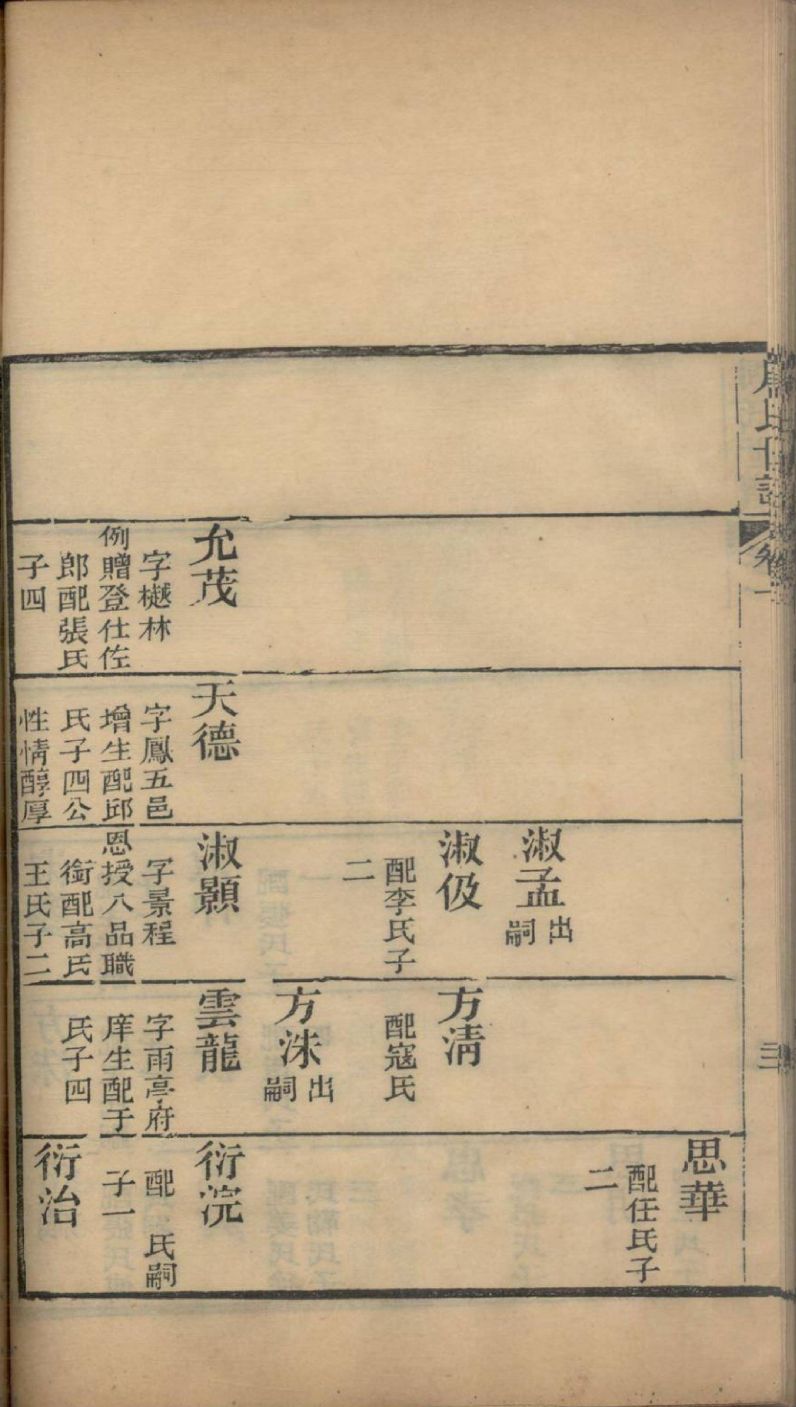 氏世譜
卷一
三
允茂
字樾林
例贈登仕佐
郎配張氏
子四
天德
字鳳五邑
增生配邱
氏子四公
性情醇厚
淑孟
出
嗣
淑伋
配李氏子
二
淑顥
字景程
恩授八品職
銜配高氏
王氏子二
方清
配寇氏
方洙
出
嗣
雲龍
字雨亭府
庠生配于
氏子四
思華
配任氏子
二
衍浣
配　氏嗣
子一
衍治